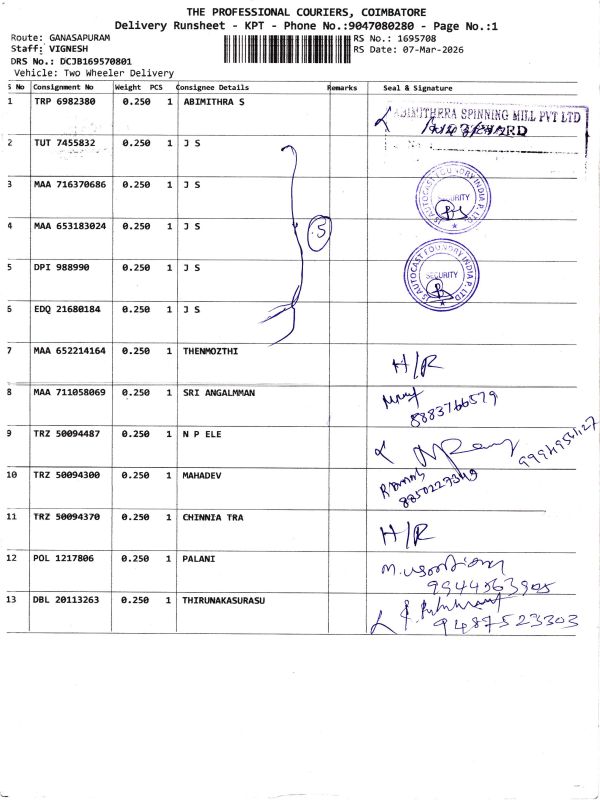 THE PROFESSIONAL COURIERS, COIMBATORE
Delivery Runsheet - KPT - Phone No.:9047080280 - Page No.:1
Route: GANASAPURAM
RS No.: 1695708
Staff: VIGNESH
RS Date: 07-Mar-2026
DRS No.: DCJB169570801
Vehicle: Two Wheeler Delivery
S No Consignment No Weight PCS Consignee Details Remarks Seal & Signature
1 TRP 6982380 0.250 1 ABIMITHRA S
ABIMITHRRA SPINNING MILL PVT LTD
2 TUT 7455832 0.250 1 J S
3 MAA 716370686 0.250 1 J S
JS AUTOCAST FOUNDRY INDIA P. LTD. SECURITY
4 MAA 653183024 0.250 1 J S
5
5 DPI 988990 0.250 1 J S
JS AUTOCAST FOUNDRY INDIA P. LTD. SECURITY
6 EDQ 21680184 0.250 1 J S
7 MAA 652214164 0.250 1 THENMOZTHI
H/R
8 MAA 711058069 0.250 1 SRI ANGALMMAN
8883766579
9 TRZ 50094487 0.250 1 N P ELE
10 TRZ 50094300 0.250 1 MAHADEV
11 TRZ 50094370 0.250 1 CHINNIA TRA
H/R
12 POL 1217806 0.250 1 PALANI
9944563905
13 DBL 20113263 0.250 1 THIRUNAKASURASU
9487523303